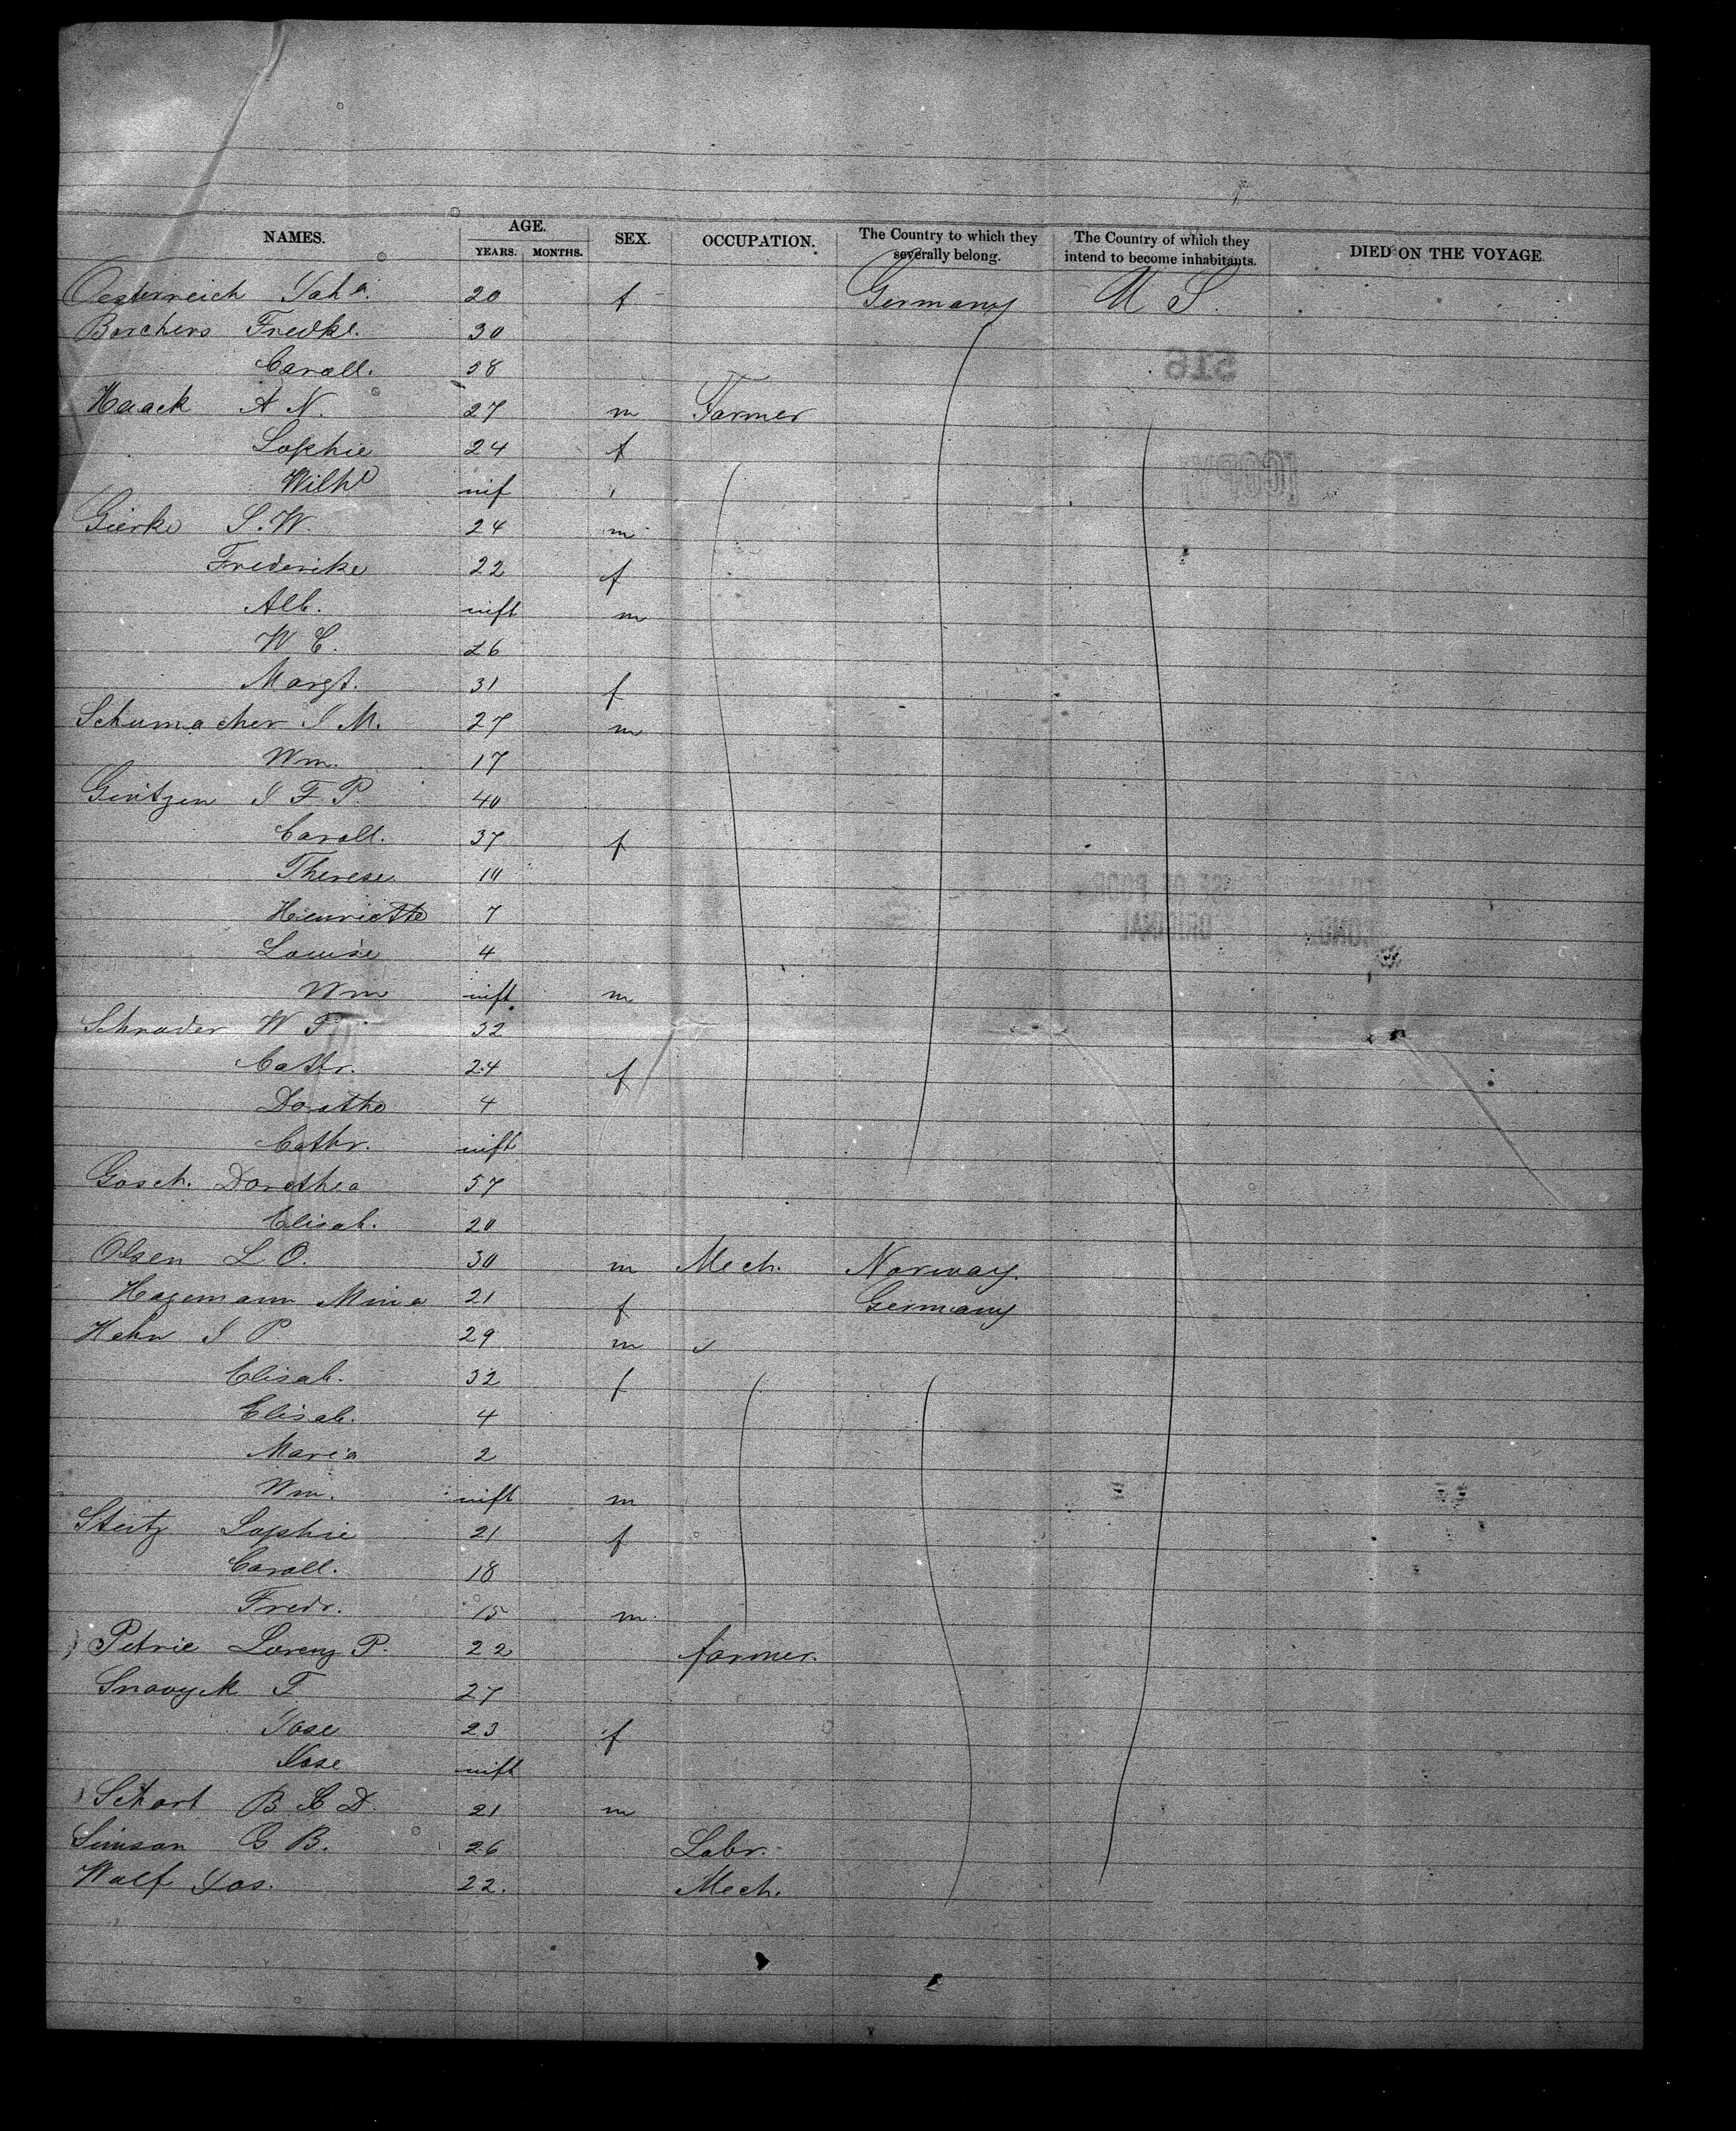 NAMES. AGE. SEX. OCCUPATION. The Country to which they severally belong. The Country of which they intend to become inhabitants. DIED ON THE VOYAGE.
YEARS. MONTHS.
Oesterreich Joha. 20 f Germany U S.
Borchers Fredke. 30
Caroll. 28
Haack A N. 27 m Farmer
Sophie 24 f
Wilhe inf
Gierke J. W. 24 m
Frederike 22 f
Alb. inft m
W C. 26
Margt. 31 f
Schumacher J M. 27 m
Wm. 17
Geritzen J F P. 40
Caroll. 37 f
Therese 10
Henriette 7
Louise 4
Wm inft m
Schrader W F 32
Cathr. 24 f
Dorothe 4
Cathr. inft
Gosch. Dorothea 57
Elisab. 20
Olsen L O. 30 m Mech. Norway.
Hagemann Mina 21 f Germany
Hehn J P 29 m
Elisab. 32 f
Elisab. 4
Maria 2
Wm. inft m
Steitz Sophie 21 f
Caroll. 18
Fredr. 15 m
Petrie Lorenz P. 22 farmer.
F 27
Jose 23 f
inft
B C D. 21 m
Simson G B. 26 Labr.
Wolf Jos. 22. Mech.
516